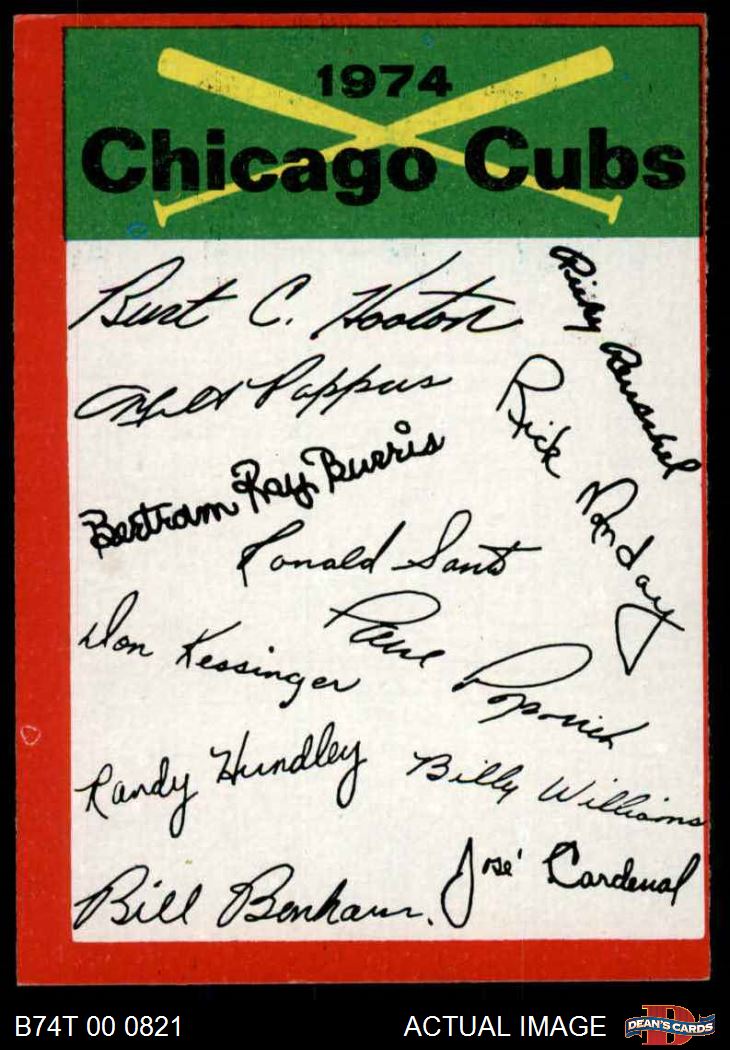 1974
Chicago Cubs
Burt C. Hooton
Ricky Reuschel
Milt Pappas
Rick Monday
Bertram Ray Burris
Ronald Santo
Don Kessinger
Paul Popovich
Randy Hundley
Billy Williams
José Cardenal
Bill Bonham.
B74T 00 0821
ACTUAL IMAGE
D
DEAN'S CARDS